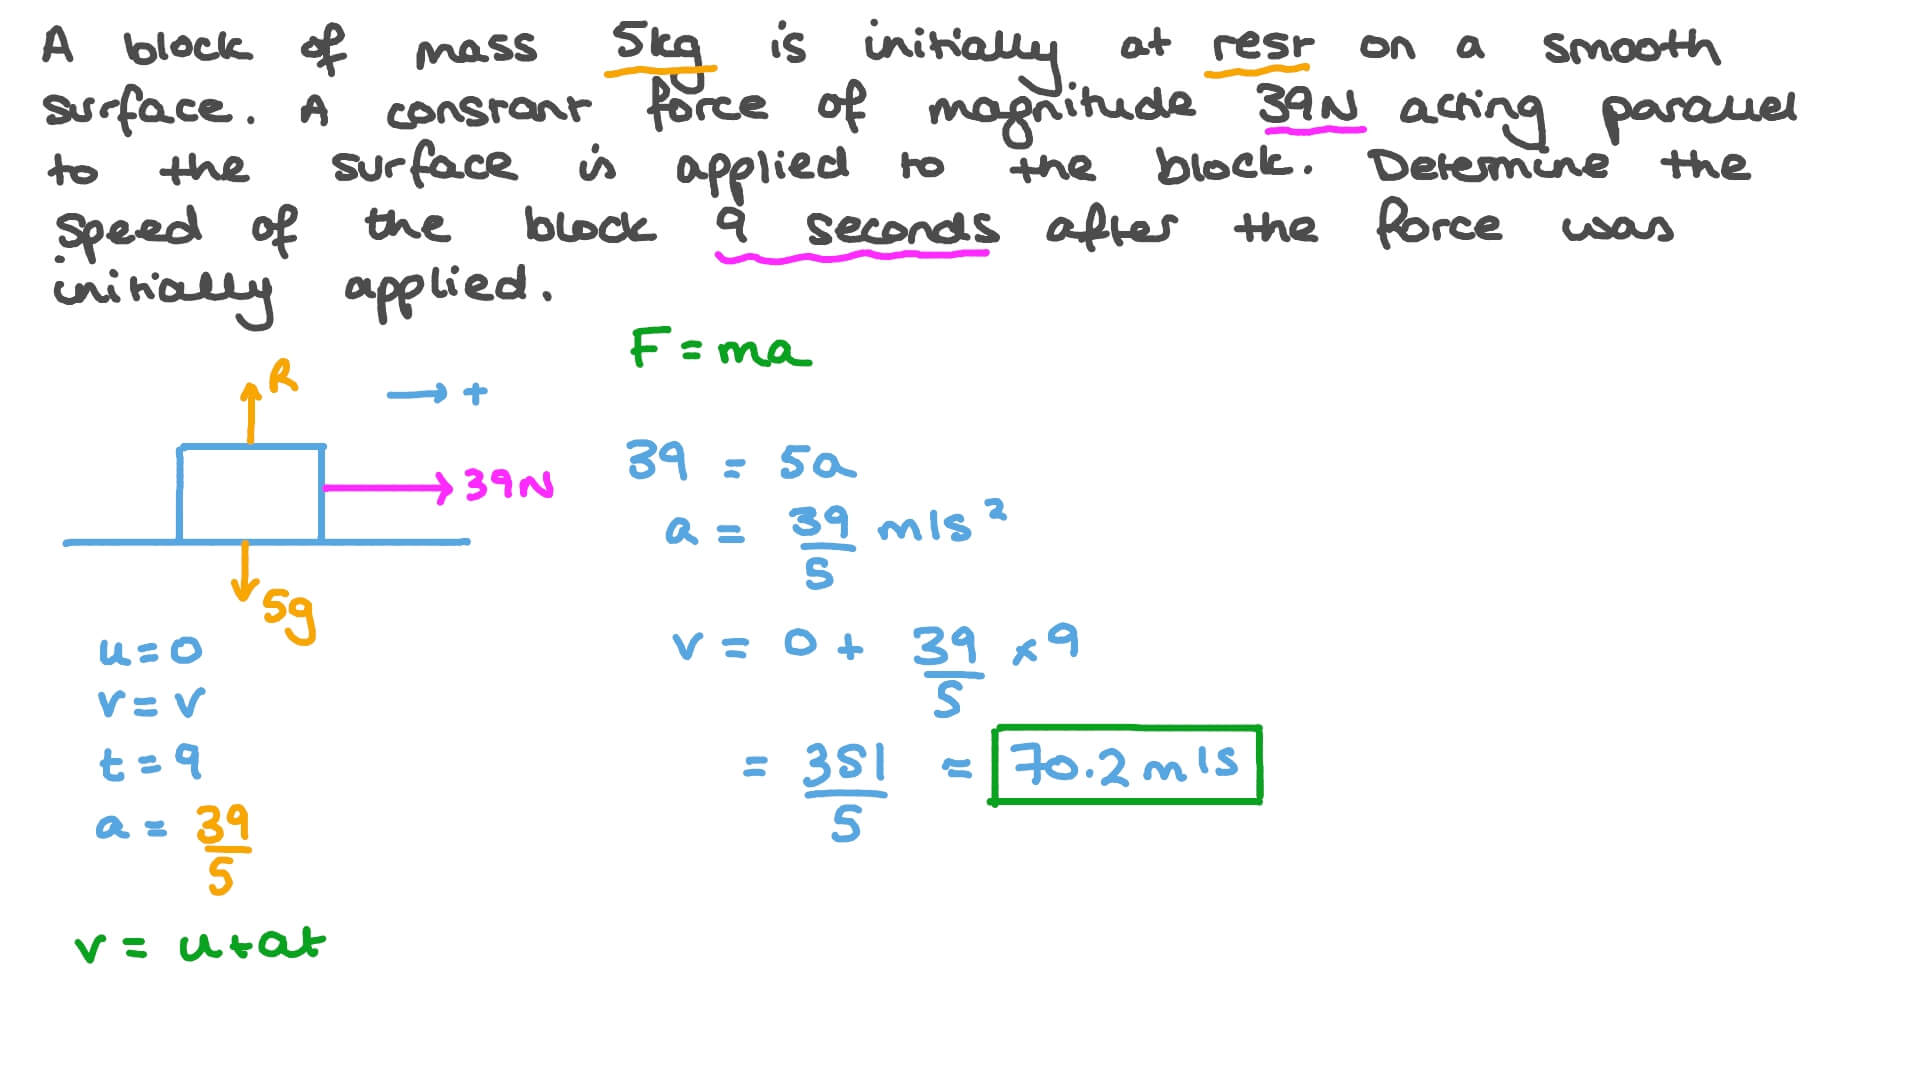 A block of mass 5kg is initially at rest on a smooth
surface. A constant force of magnitude 39N acting parallel
to the surface is applied to the block. Determine the
speed of the block 9 seconds after the force was
initially applied.
F = ma
R
→ +
39N
5g
39 = 5a
a = 39/5 m/s²
v = 0 + 39/5 × 9
= 351/5 = 70.2 m/s
u = 0
v = v
t = 9
a = 39/5
v = u + at